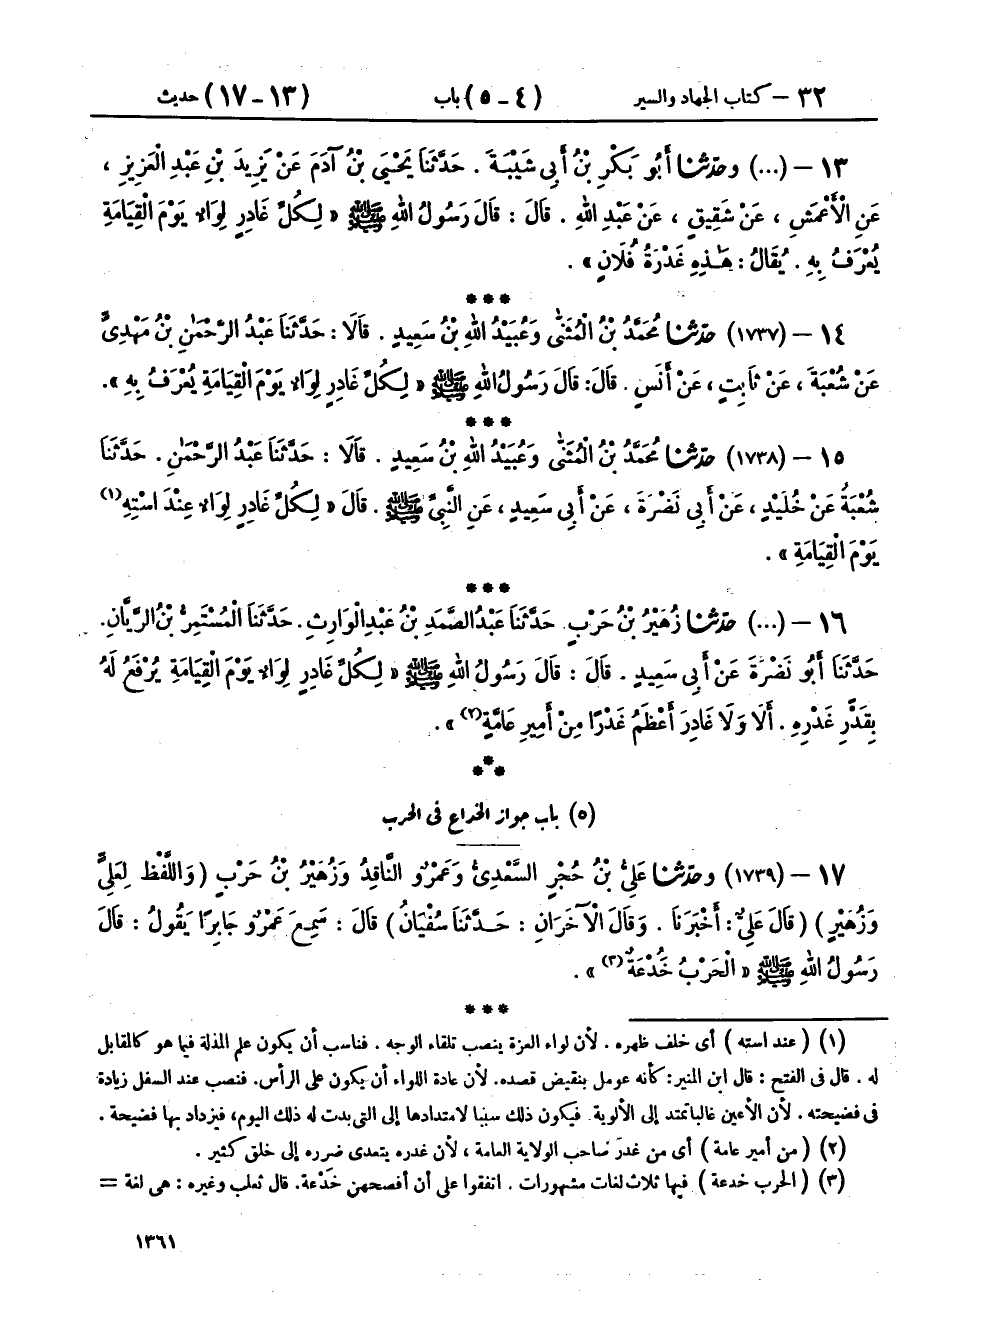 ٣٢ – كتاب الجهاد والسير (٤ – ٥) باب (١٣ – ١٧) حديث
١٣ – (...) وحَدَّثَنَا أَبُو بَكْرِ بْنُ أَبِي شَيْبَةَ . حَدَّثَنَا يَحْيَىٰ بْنُ آدَمَ عَنْ يَزِيدَ بْنِ عَبْدِ الْعَزِيزِ ،
عَنِ الْأَعْمَشِ ، عَنْ شَقِيقٍ ، عَنْ عَبْدِ اللهِ . قَالَ : قَالَ رَسُولُ اللهِ ﷺ « لِكُلِّ غَادِرٍ لِوَاءٌ يَوْمَ الْقِيَامَةِ
يُعْرَفُ بِهِ . يُقَالُ : هَٰذِهِ غَدْرَةُ فُلَانٍ » .
***
١٤ – (١٧٣٧) حَدَّثَنَا مُحَمَّدُ بْنُ الْمُثَنَّىٰ وَعُبَيْدُ اللهِ بْنُ سَعِيدٍ . قَالَا : حَدَّثَنَا عَبْدُ الرَّحْمَٰنِ بْنُ مَهْدِيٍّ
عَنْ شُعْبَةَ ، عَنْ ثَابِتٍ ، عَنْ أَنَسٍ . قَالَ: قَالَ رَسُولُ اللهِ ﷺ « لِكُلِّ غَادِرٍ لِوَاءٌ يَوْمَ الْقِيَامَةِ يُعْرَفُ بِهِ ».
***
١٥ – (١٧٣٨) حَدَّثَنَا مُحَمَّدُ بْنُ الْمُثَنَّىٰ وَعُبَيْدُ اللهِ بْنُ سَعِيدٍ . قَالَا : حَدَّثَنَا عَبْدُ الرَّحْمَٰنِ . حَدَّثَنَا
شُعْبَةُ عَنْ خُلَيْدٍ ، عَنْ أَبِي نَضْرَةَ ، عَنْ أَبِي سَعِيدٍ ، عَنِ النَّبِيِّ ﷺ . قَالَ « لِكُلِّ غَادِرٍ لِوَاءٌ عِنْدَ اسْتِهِ(١)
يَوْمَ الْقِيَامَةِ » .
***
١٦ – (...) حَدَّثَنَا زُهَيْرُ بْنُ حَرْبٍ . حَدَّثَنَا عَبْدُ الصَّمَدِ بْنُ عَبْدِ الْوَارِثِ . حَدَّثَنَا الْمُسْتَمِرُّ بْنُ الرَّيَّانِ.
حَدَّثَنَا أَبُو نَضْرَةَ عَنْ أَبِي سَعِيدٍ . قَالَ : قَالَ رَسُولُ اللهِ ﷺ « لِكُلِّ غَادِرٍ لِوَاءٌ يَوْمَ الْقِيَامَةِ يُرْفَعُ لَهُ
بِقَدْرِ غَدْرِهِ . أَلَا وَلَا غَادِرَ أَعْظَمُ غَدْرًا مِنْ أَمِيرِ عَامَّةٍ(٢) » .
***
(٥) باب جواز الخداع فى الحرب
١٧ – (١٧٣٩) وحَدَّثَنَا عَلِيُّ بْنُ حُجْرٍ السَّعْدِيُّ وَعَمْرٌو النَّاقِدُ وَزُهَيْرُ بْنُ حَرْبٍ ( وَاللَّفْظُ لِعَلِيٍّ
وَزُهَيْرٍ ) ( قَالَ عَلِيٌّ : أَخْبَرَنَا . وَقَالَ الْآخَرَانِ : حَدَّثَنَا سُفْيَانُ ) قَالَ : سَمِعَ عَمْرٌو جَابِرًا يَقُولُ : قَالَ
رَسُولُ اللهِ ﷺ « الْحَرْبُ خُدْعَةٌ(٣) » .
***
(١) ( عند استه ) أى خلف ظهره . لأن لواء العزة ينصب تلقاء الوجه . فناسب أن يكون علم المذلة فيما هو كالمقابل
له . قال فى الفتح : قال ابن المنير: كأنه عومل بنقيض قصده. لأن عادة اللواء أن يكون على الرأس. فنصب عند السفل زيادة
فى فضيحته . لأن الأعين غالبا تمتد إلى الألوية . فيكون ذلك سببا لامتدادها إلى التى بدت له ذلك اليوم، فيزداد بها فضيحة .
(٢) ( من أمير عامة ) أى من غدر صاحب الولاية العامة ، لأن غدره يتعدى ضرره إلى خلق كثير .
(٣) ( الحرب خدعة ) فيها ثلاث لغات مشهورات . اتفقوا على أن أفصحهن خَدْعة. قال ثعلب وغيره : هى لغة =
١٣٦١